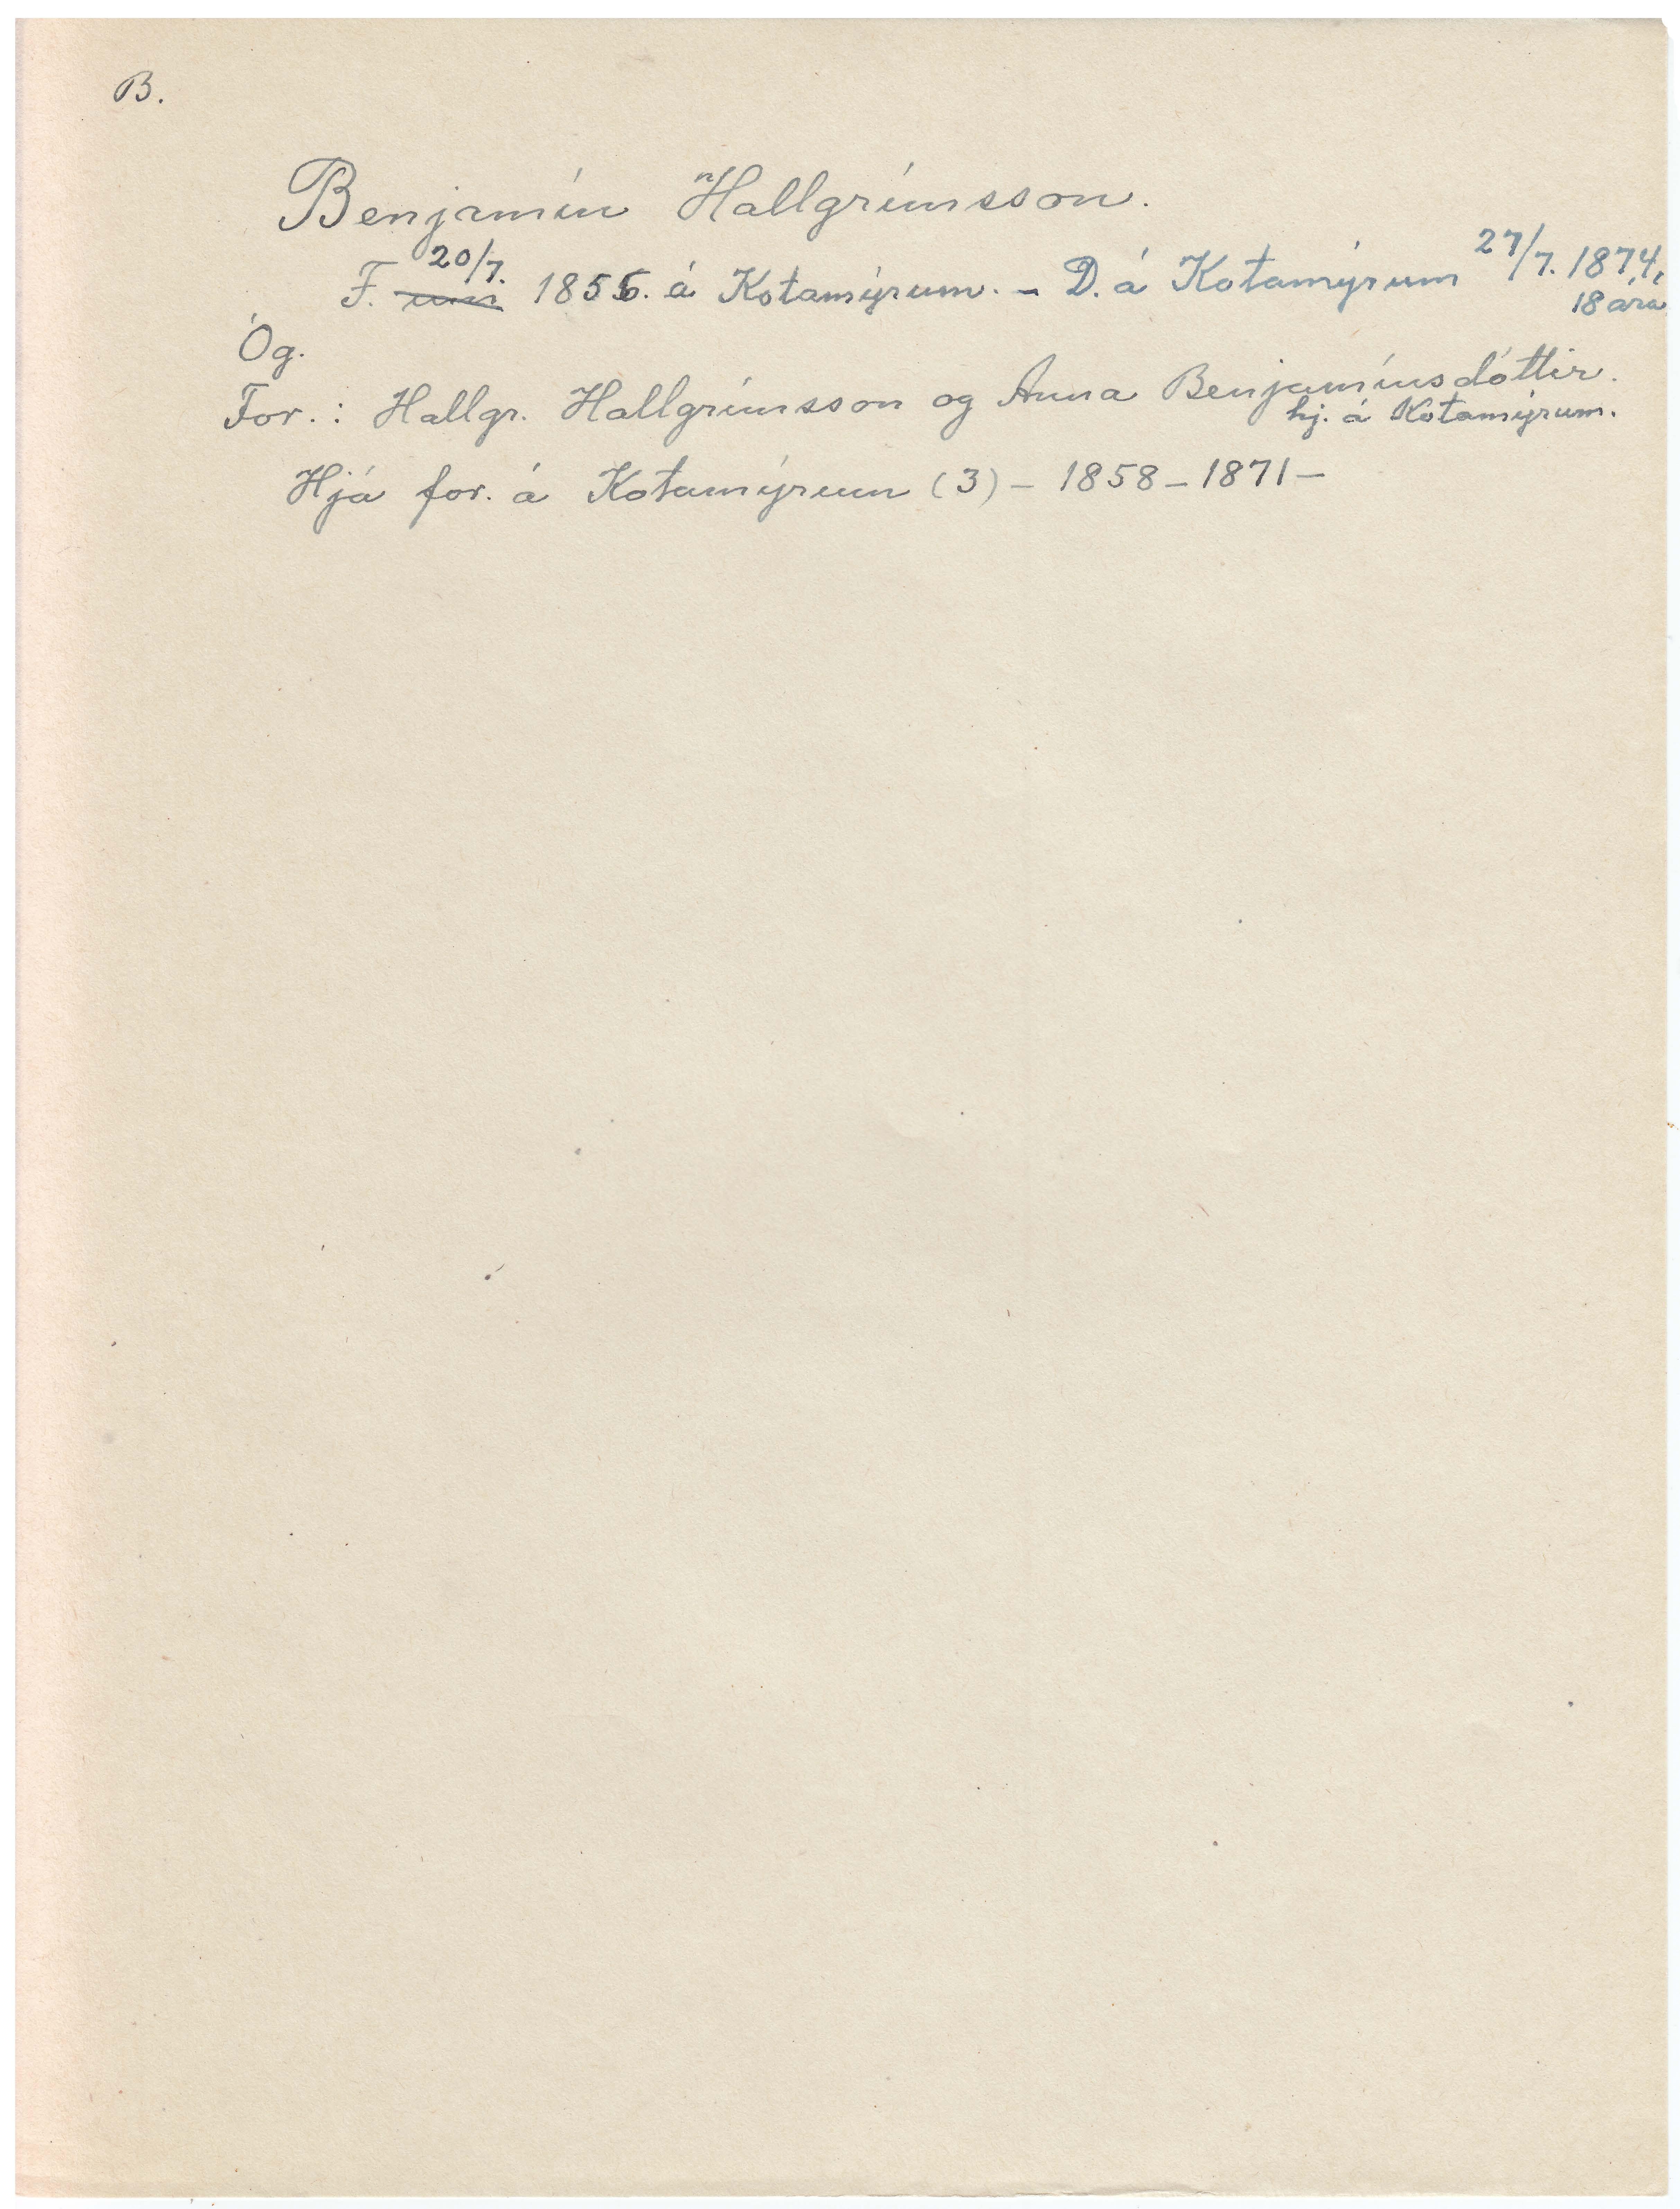 B.
Benjamín Hallgrímsson.
F. um 20/7. 1856. á Kotamýrum. – D. á Kotamýrum 27/7. 1874,
18 ára
Óg.
For.: Hallgr. Hallgrímsson og Anna Benjamínsdóttir.
hj. á Kotamýrum.
Hjá for. á Kotamýrum (3) – 1858 – 1871 –